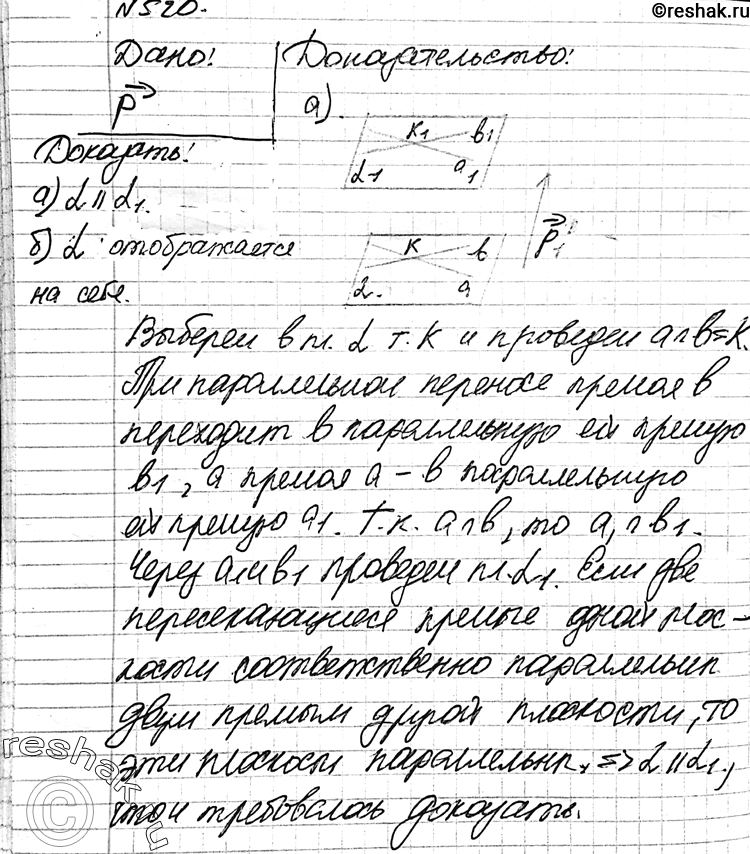 ©reshak.ru
N520.
Дано: Доказательство:
p⃗ а).
Доказать:
а) α ∥ α₁.
б) α отображается
на себя.
К₁ в₁
α₁ а₁
p⃗₁
К в
α. а
Выберем в пл. α т. К и проведем а∩в=К.
При параллельном переносе прямая в
переходит в параллельную ей прямую
в₁, а прямая а – в параллельную
ей прямую а₁. Т.к. а∩в, то а₁∩в₁.
Через а₁ и в₁ проведем пл. α₁. Если две
пересекающиеся прямые одной плос-
кости соответственно параллельны
двум прямым другой плоскости, то
эти плоскости параллельны. => α ∥ α₁,
что и требовалось доказать.
reshak.ru
©